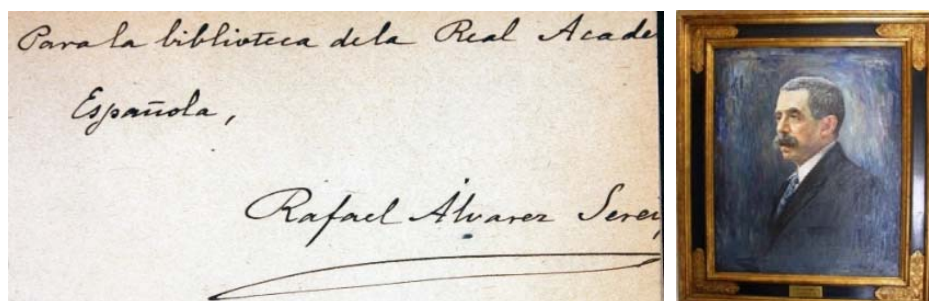 Para la biblioteca dela Real Acade
Española,
Rafael Álvarez Serei